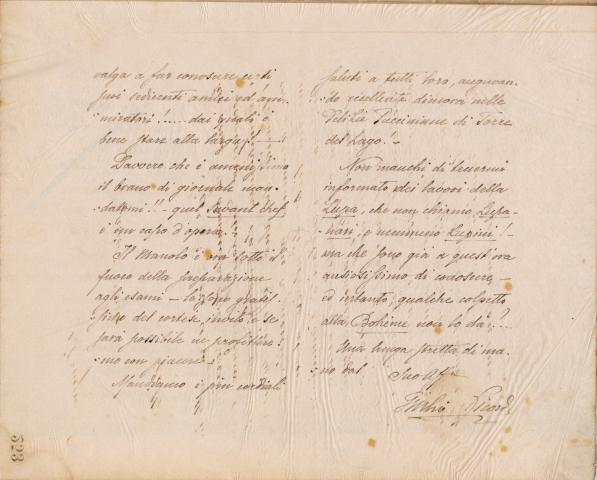 valga a far conoscere certi
suoi sedicenti amici ed am-
miratori!.... dai quali è
bene stare alla larga!! —
Davvero che è amenissimo
il brano di giornale man-
datomi!! - quel Savant chef
è un capo d'opera!
Il Manolo è ora sotto il
fuoco della preparazione
agli esami —
del cortese invito, e se
sarà possibile ne profitterè-
mo con piacere.
Mandiamo i più cordiali
saluti a tutti loro, auguran-
do eccellente dimora nelle
Delizie Pucciniane di Torre
del Lago! -
Non manchi di tenermi
informato dei lavori della
Lupa, che non chiamo Lupa-
nari, e nemmeno Lupini! -
ma che sono già a quest'ora
ansiosissimo di conoscere —
ed intanto, qualche colpetto
alla Bohème non lo dà?...
Una lunga stretta di ma-
no dal Suo Aff.
Giulio Ricordi
323